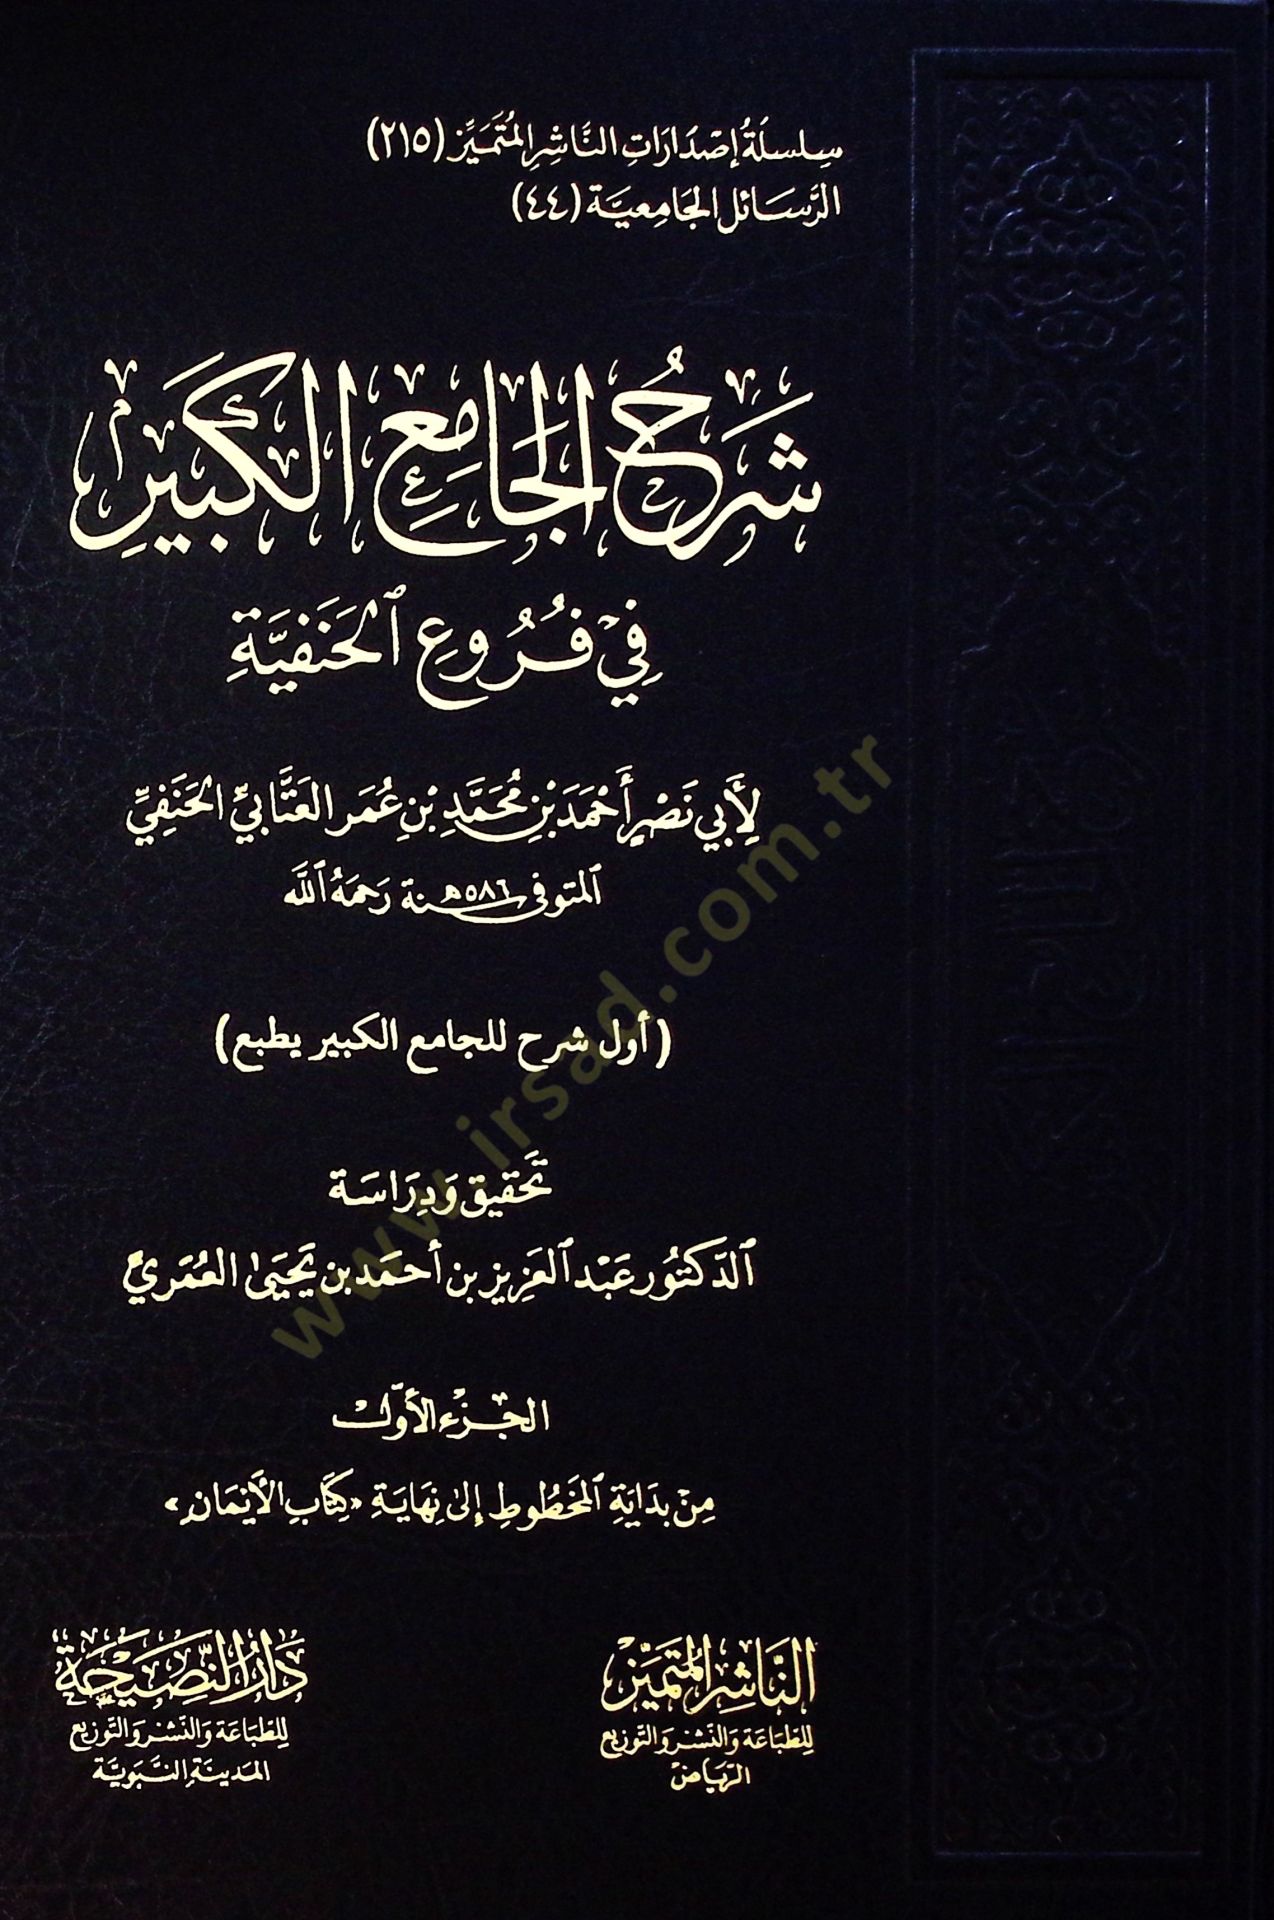 سِلسلَةُ إصْدَارَاتِ النَّاشِرِ المُتَمَيِّز (٢١٥)
الرَّسَائل الجَامِعيَّة (٤٤)
شَرْحُ الجَامِعِ الكَبِيرِ
فِي فُرُوعِ الحَنَفيَّةِ
لِأَبِي نَصْرٍ أَحْمَدَ بْنِ مُحَمَّدِ بْنِ عُمَر العَتَّابِيِّ الحَنَفِيِّ
المتوفى سنة ٥٨٦هـ رَحِمَهُ اللَّه
(أول شرح للجامع الكبير يطبع)
تَحقيق وَدِرَاسَة
الدّكتُور عَبْد العَزِيز بن أحمَد بن يَحيَىٰ العُمَري
الجُزء الأوّل
مِنْ بدَايَةِ المَخطُوطِ إلىٰ نِهَايَةِ «كِتَابِ الأَيْمَان»
النَّاشِر المُتَميّز
للطّبَاعَة وَالنّشْر وَالتّوزيع
الرّيَاض
دَارُ النَّصِيحَة
للطّبَاعَة وَالنّشْر وَالتّوزيع
المَدينَة النَّبَويَّة
www.irsad.com.tr